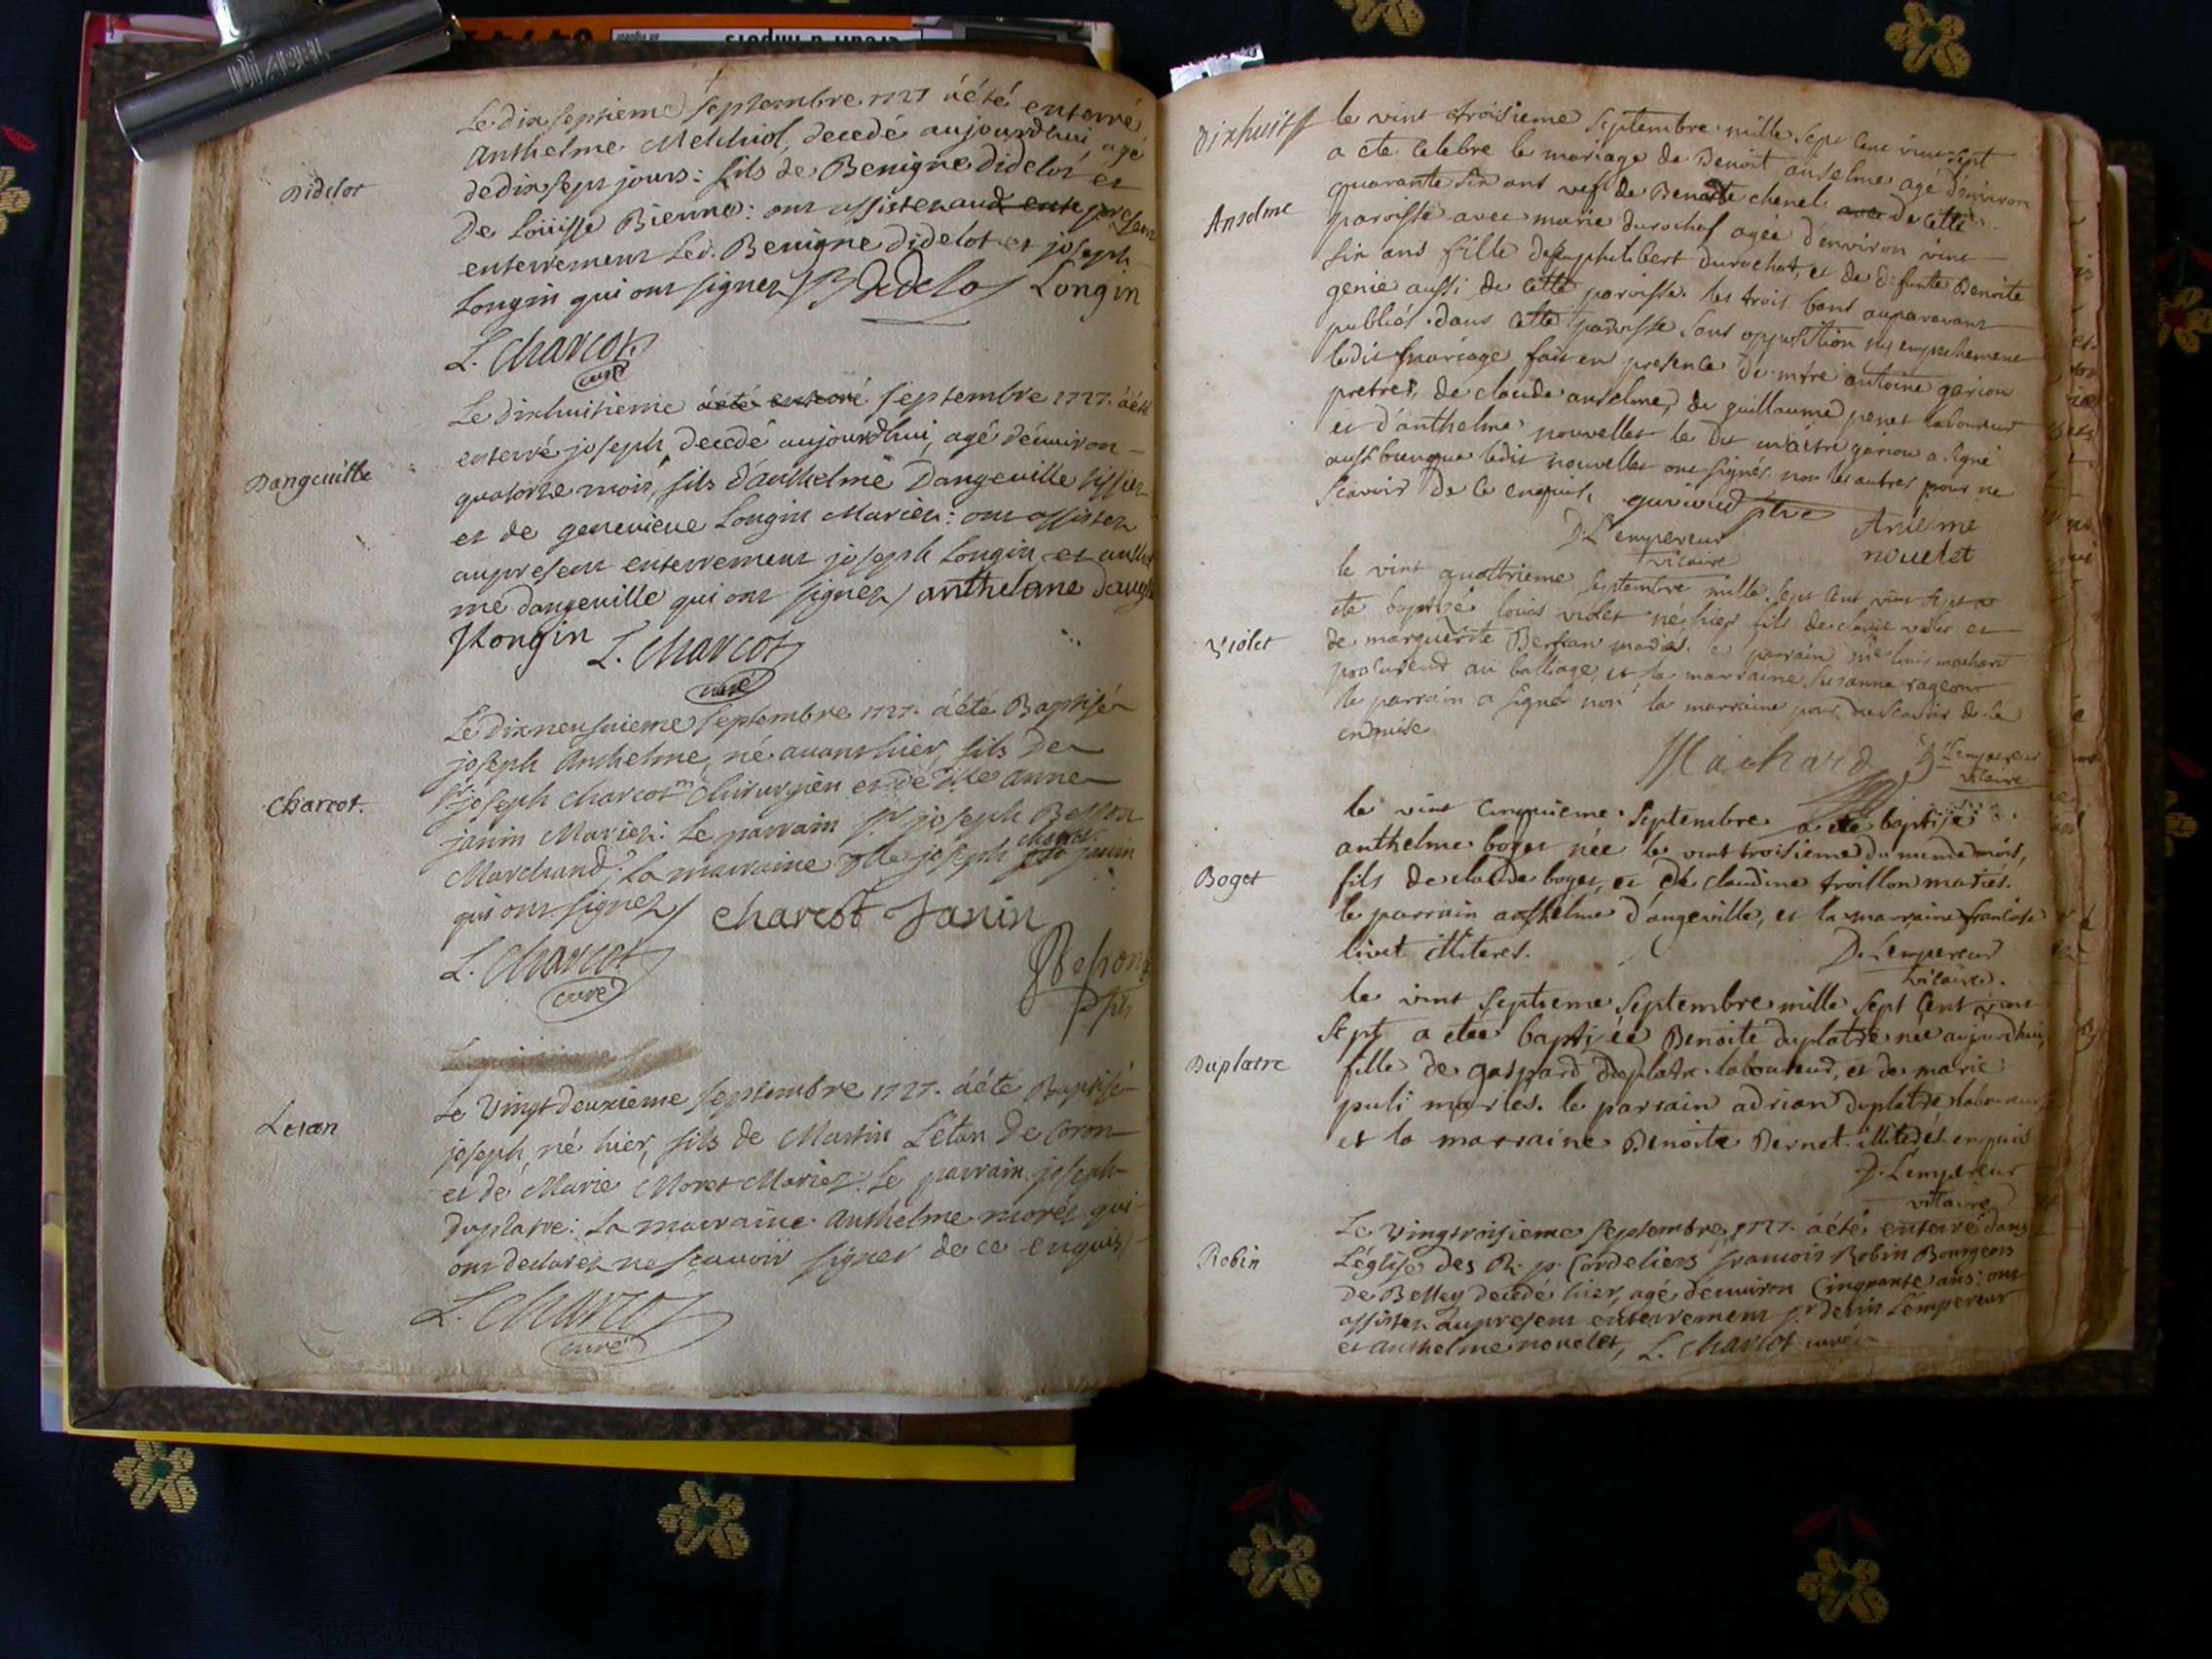 Didelot
Le dix septieme septembre 1727 a été enterré
Anthelme Melchiol, decedé aujourdhui, agé
de dix sept jours: fils de Benigne Didelot et
de Loüisse Bienne: ont assistez au
enterrement led. Benigne didelot et joseph
Longin qui ont signez Didelot Longin
L. Charcot
curé
Dangeuille
Le dixhuitieme a été enterré septembre 1727. a été
enterré joseph, decedé aujourdhui, agé d'enuiron
quatorze mois, fils d'anthelme Dangeuille tissier
et de geneuieue Longin Mariez: ont assistez
au present enterrement joseph Longin et anthel
me dangeuille qui ont signez anthelme
JLongin L. Charcot
curé
Charcot.
Le dixneufuieme septembre 1727. a été Baptisé
joseph Anthelme, né auanthier, fils de
sr. joseph Charcot m. chirurgien et de dlle anne
janin Mariez: Le parrain sr. joseph Besson
Marchand: La marraine dlle joseph charcot janin
qui ont signez charcot Janin
L. Charcot
curé
Letan
Le Vingt deuxieme septembre 1727. a été Baptisé
joseph, né hier, fils de Martin Létan de Coron
et de Marie Moret Mariez: Le parrain joseph
duplatre: La marraine Anthelme moret qui
ont declarez ne scauoir signer de ce enquis
L. Charcot
curé
dixhuit
Anselme
le vint troisieme septembre mille sept cent vint sept
a ete celebre le mariage de Benoit anselme agé d'environ
quarante six ans vef de Benoite chenel avec de cette
paroisse avec marie durochat agée d'environ vint
six ans fille de philibert durochat, et de defunte Benoite
genie aussi de cette paroisse. les trois bans auparavant
publiés dans cette paroisse sans opposition ny empechement
ledit mariage fait en presence de mtre antoine gariou
pretre, de claude anselme, de guillaume penet laboureur
et d'anthelme nouvellet le dit maitre gariou a signé
aussi bien que ledit nouvellet ont signés. non les autres pour ne
scavoir de ce enquis. ptre
D. Lempereur Antelme
vicaire nouelet
Violet
le vint quattrieme septembre mille sept cent vint sept a
ete baptisé louis violet né hier fils de claude violet et
de marguerite mariés. le parrain me louis machard
procureur au balliage, et la marraine susanne rageour
le parrain a signé non la marraine pour ne scavoir de ce
enquise
Machard D. Lempereur
vicaire
Boget
le vint cinquieme septembre a ete baptisé
anthelme boget née le vint troisieme du meme mois,
fils de claude boget, et de claudine troillon mariés.
le parrain anthelme d'angeville, et la marraine francoise
livet illiteres. D. Lempereur
vicaire.
Duplatre
le vint septieme septembre mille sept cent vint
sept a etee baptisée Benoite duplatre née aujourdhui,
fille de gaspard duplatre laboureur, et de marie
puli maries. le parrain adrian duplatre laboureur
et la marraine Benoite Dernet. illiterés enquis
D. Lempereur
vicaire
Robin
Le Vingtroisieme septembre 1727. a été enterré dans
L'église des R. p. Cordeliers francois Robin Bourgeois
de Belley decedé hier, agé d'enuiron Cinquante ans: ont
assistez au present enterrement sr. denis Lempereur
et anthelme nouelet, L. Charcot curé